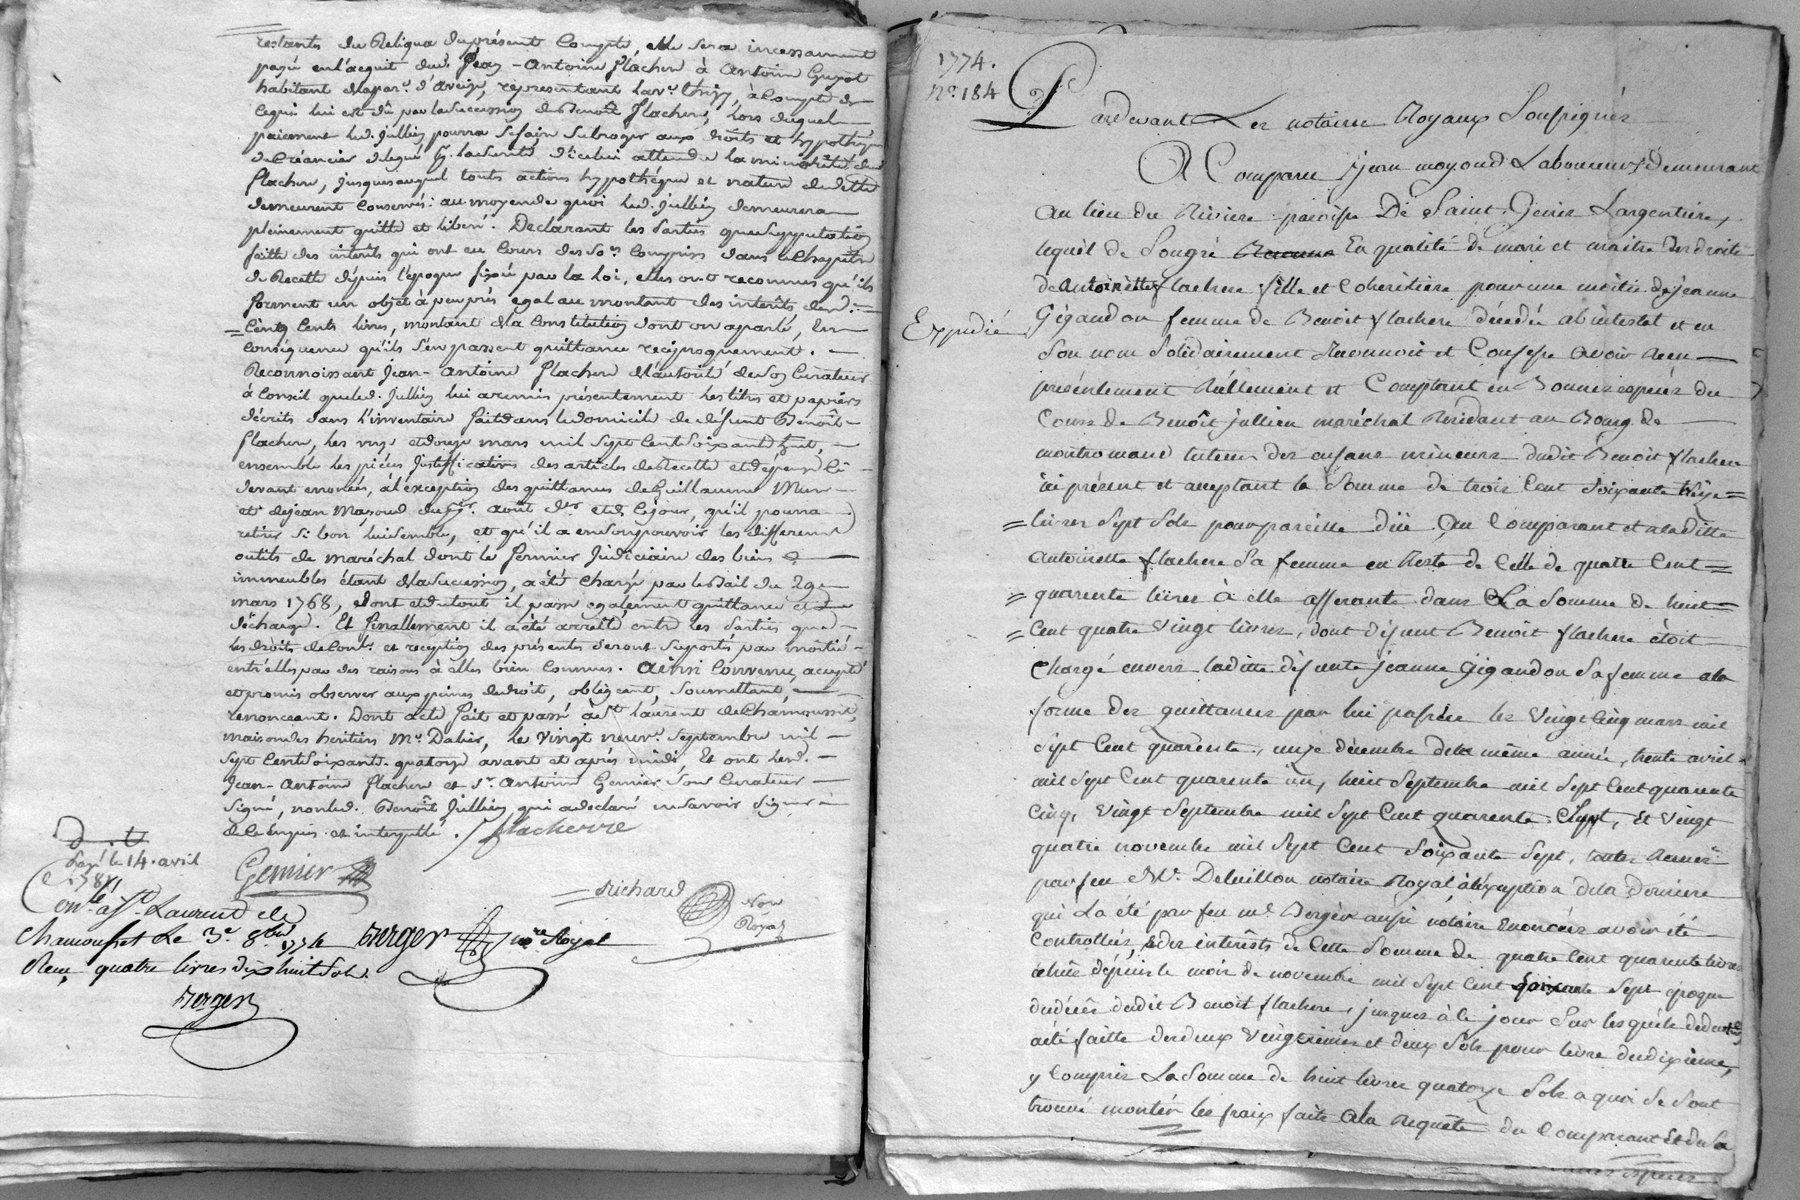 restants du Reliqua du présent Compte, elle sera incessament
payé en l'acquit dud. Jean-Antoine flachere à Antoine Guyot
habitant de la par.e d'Aveize, représentant la v.e, à compte de
ce qui lui est dû par la succession de Benoît flachere, lors duquel
paiement led. Jullien pourra se faire subroger aux droits et hypothèque
du Créancier délégué d'icelui attendu la minorité dud.
flachere, jusques auquel touts actions hypothéque et nature de dette
demeurent conservés: au moyen de quoi led. Jullien demeurera
pleinement quitte et libéré. Declarant les Parties que supputation
faitte des interêts qui ont eu cours des so.es comprises dans le chapitre
de Recette depuis l'epoque fixée par la loi, elles ont reconnues qu'ils
forment un objet à peu près egal au montant des interêts de
cents livres, montant de la Constitution dont on a parlé, en
conséquence qu'ils s'en passent quittance reciproquement.
Reconnoissant Jean-Antoine flachere de l'autorité de son Curateur
à Conseil que led. Jullien lui a remis présentement les titres et papiers
décrits dans l'inventaire fait dans le domicile de défunt Benoît
flachere, les et douze mars mil sept cent soixante huit,
ensemble les pièces justifficatives des articles de Recette et depense ci-
devant enoncés, à l'exception des quittances de Guillaume
et de jean août et de ce jour, qu'il pourra
retirer si bon lui semble, et qu'il a en son pouvoir les differens
outils de maréchal dont le fermier judiciaire des biens
immeubles étant de la succession, a été chargé par le bail du 29e
mars 1768, dont et du tout il passe egalement quittance et
décharge. Et finallement il a été arretté entre les Parties que
les droits de Cont. et reception des présentes seront suportés par moitié
entr'elles par des raisons à elles bien connues. Ainsi convenu, accepté
et promis observer aux peines de droit, obligeant, soumettant,
renonceant. Dont acte fait et passé à St laurent de Chamousset,
maison des heritiers Mr. Dalier, le vingt neuv. septembre mil
sept cent soixante-quatorze avant et après midi. Et ont led.
Jean-Antoine flachere et Sr. Antoine Gemier son Curateur
signé, non led. Benoît Jullien qui a declaré ne savoir signer
de ce enquis et interpellé. flacherre
le 14. avril
1781
Gemier
Richard
Not.
Royal
Con.lé à St. Laurent de
Chamousset le 3e. 8bre 1774 Berger n.re Royal
Reçu quatre livres dix huit sols.
Berger
1774.
n.o 184
Pardevant Les notaires Royaux Soussignés
A Comparu jean moyoud Laboureur demeurant
au lieu du Riviere paroisse De Saint Genis Largentiere,
lequel de Son gré En qualité de mari et maitre des droits
de Antoinette flachere fille et coheritiere pour une moitié de jeanne
Expedié
Gigandon femme de Benoit flachere décédée ab intestat et en
son nom Solidairement Reconnoit et Confesse avoir reçu
présentement Réellement et Comptant en Bonnes espèces du
Cours de Benoît jullien maréchal Résidant au Bourg de
montromant tuteur des enfans mineurs dudit Benoit flachere
ici présent et acceptant la Somme de trois cent Soixante treize
livres Sept Sols pour pareille düe Au Comparant et a laditte
Antoinette flachere Sa femme en Reste de Celle de quatre Cent
quarente livres à elle afferante dans La Somme de huit
Cent quatre vingt livres, dont défunt Benoît flachere étoit
Chargé envers laditte défunte jeanne Gigandon Sa femme a la
forme des quittances par lui passées les vingt cinq mars mil
Sept Cent quarente, onze décembre de la même année, trente avril
mil Sept Cent quarente un, huit Septembre mil Sept Cent quarente
Cinq, vingt Septembre mil Sept Cent quarente Sept, et vingt
quatre novembre mil Sept Cent Soixante Sept, toutes
par feu Me. notaire Royal à l'exception de la derniere
qui La été par feu me. Berger aussi notaire enoncées avoir été
Controllées, et des intérêts de Cette Somme de quatre Cent quarente livres
échûs dépuis le mois de novembre mil Sept Cent Soixante Sept époque
du décès dudit Benoit flachere, jusques à ce jour Sur lesquels deduction
a été faitte des deux vingtiemes et deux Sols pour livre du dixieme,
y compris La Somme de huit livres quatorze Sols a quoi Se Sont
trouvé monter les fraix faits a la Requête du Comparant Et de Sa